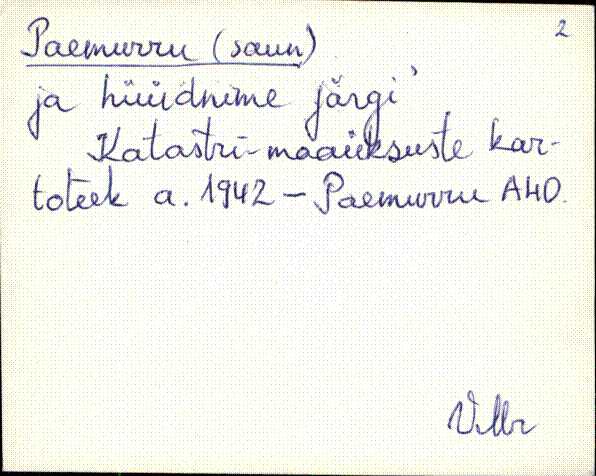 2
Paemurru (saun)
ja hüüdnime järgi
Katastri-maaüksuste kar-
toteek a. 1942 – Paemurru A40.